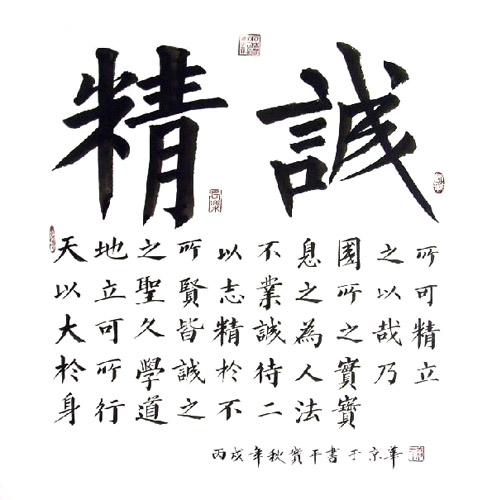 精誠
天地之所以不息國之所
以立聖賢志業之所以可
大可久皆精誠為之哉精
於所學誠於待人實乃立
身行道之不二法寶
丙戌年秋實平書于京華